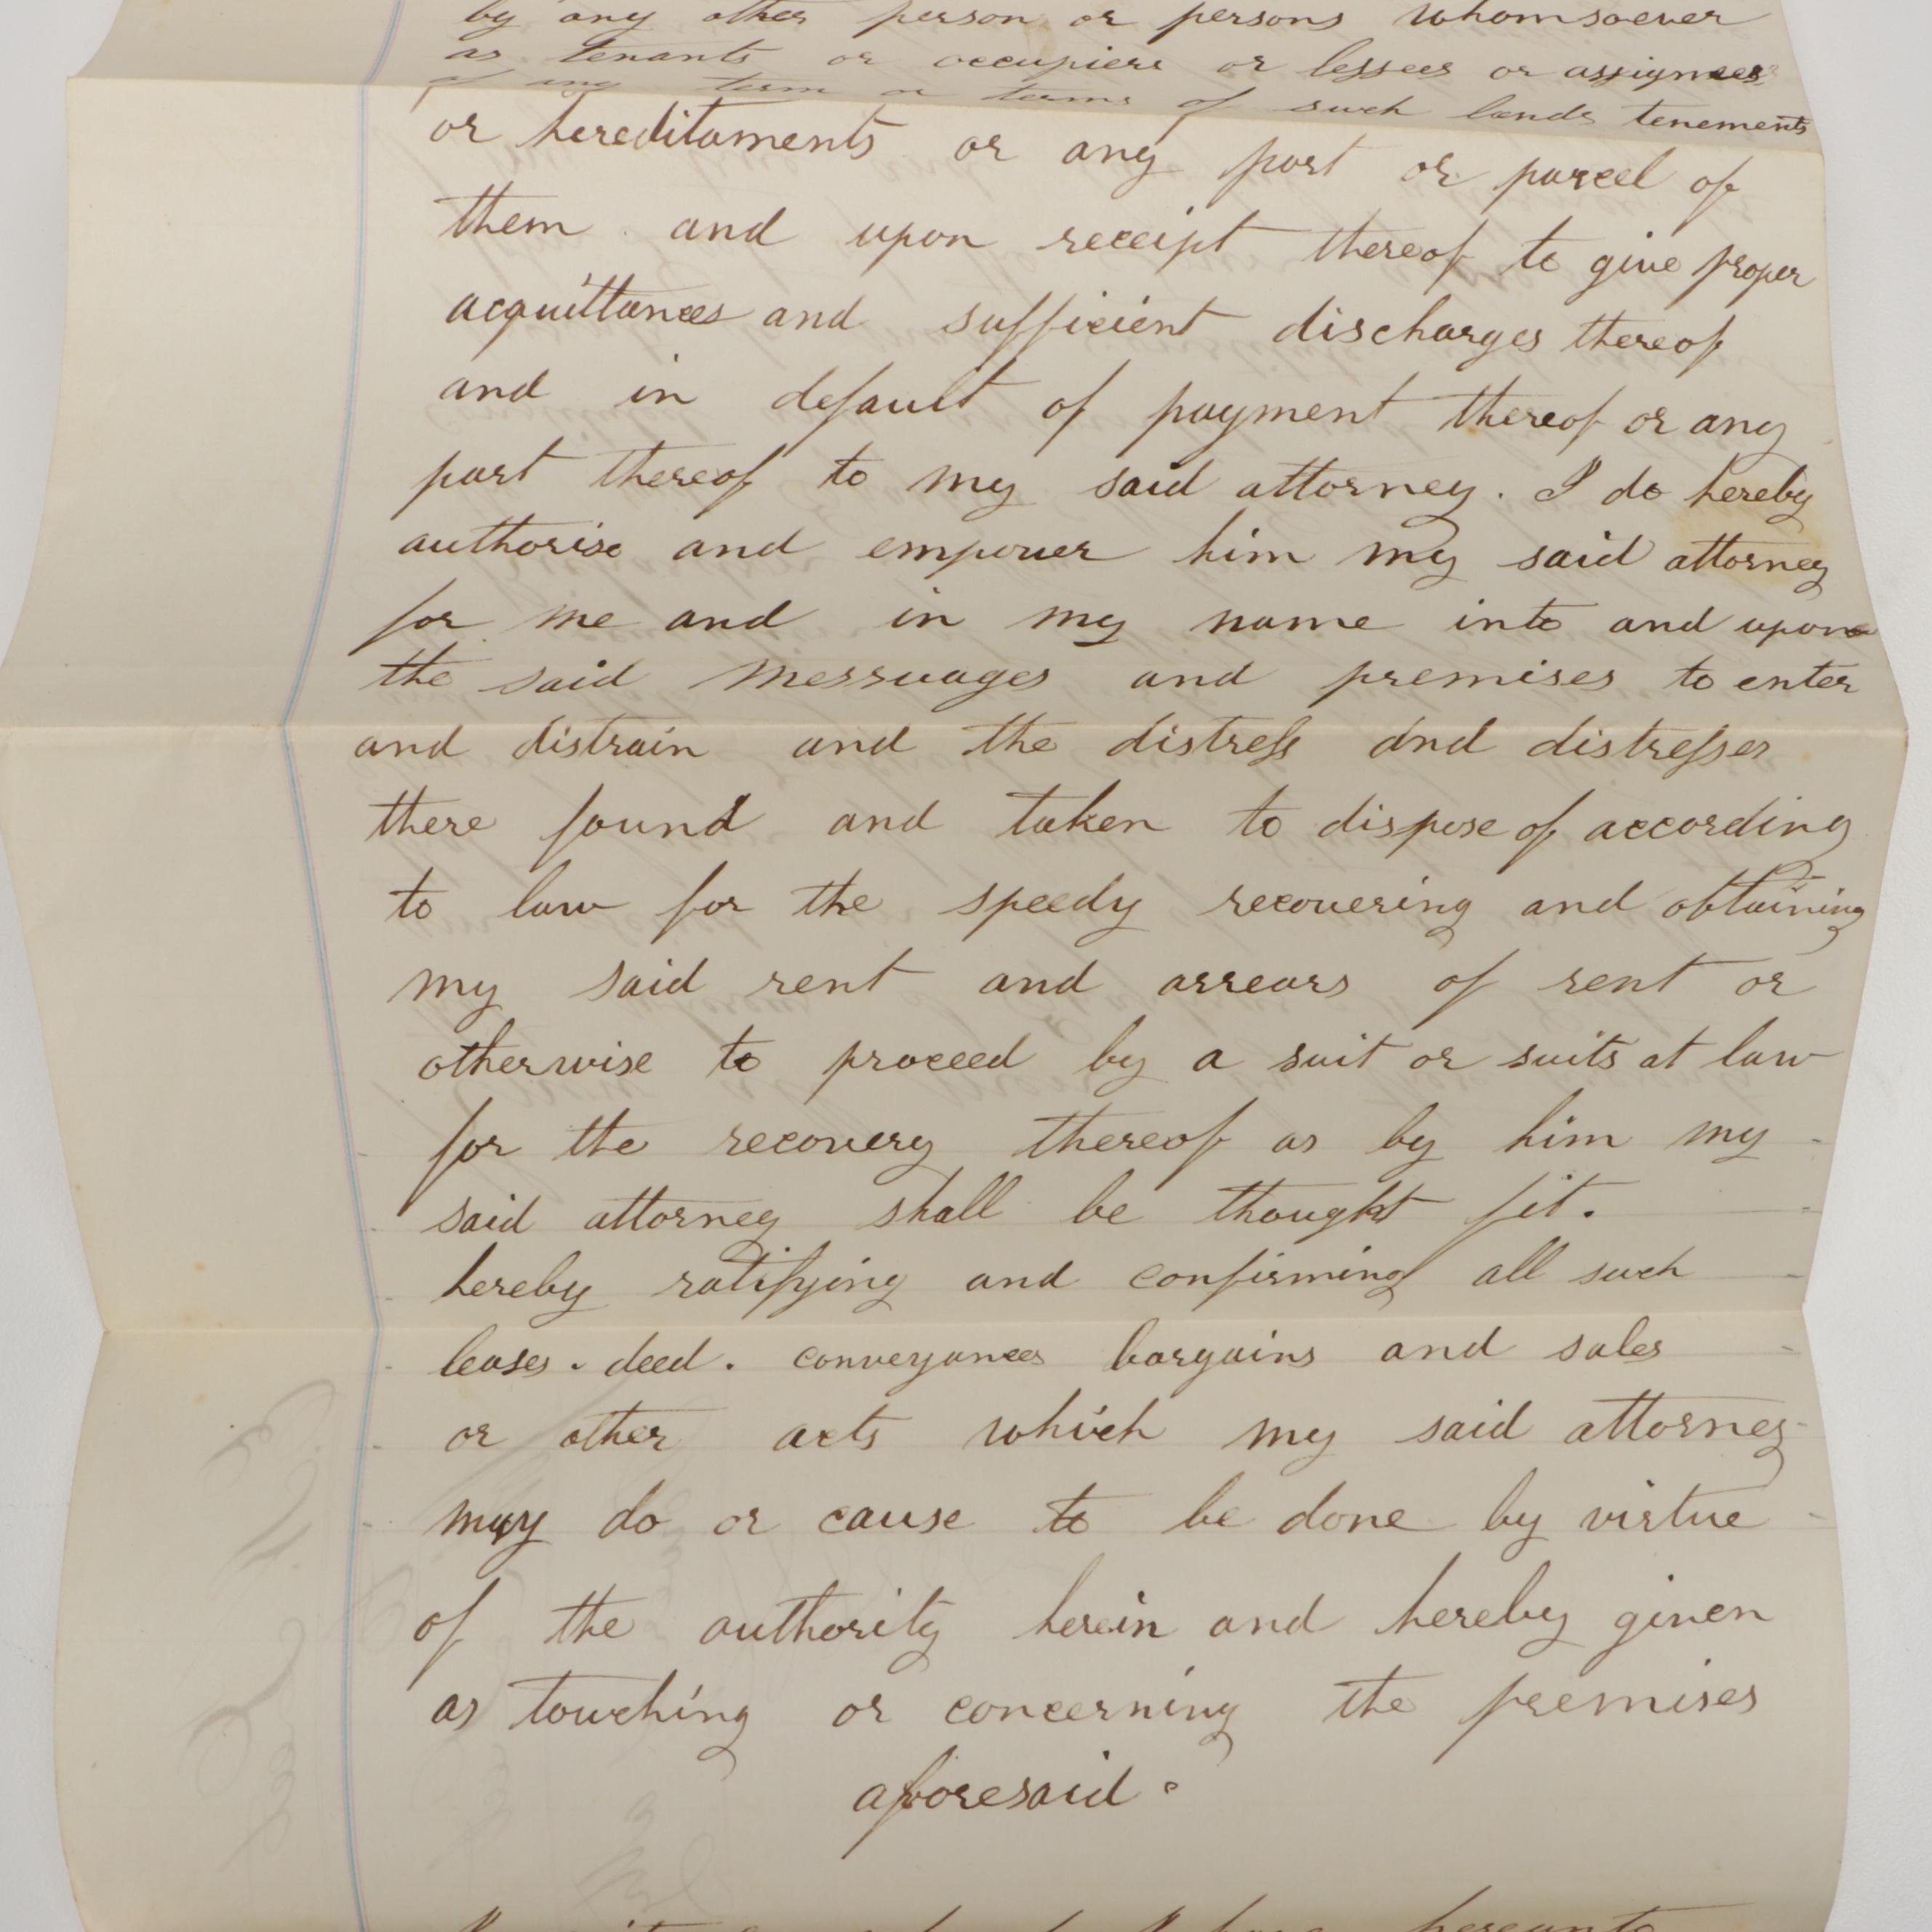 by any other person or persons whomsoever
as tenants or occupiers or lessees or assignees
of any term or terms of such lands tenements
or hereditaments or any part or parcel of
them and upon receipt thereof to give proper
acquittances and sufficient discharges thereof
and in default of payment thereof or any
part thereof to my said attorney. I do hereby
authorise and empower him my said attorney
for me and in my name into and upon
the said messuages and premises to enter
and distrain and the distress and distresses
there found and taken to dispose of according
to law for the speedy recovering and obtaining
my said rent and arrears of rent or
otherwise to proceed by a suit or suits at law
for the recovery thereof as by him my
said attorney shall be thought fit.
hereby ratifying and confirming all such
leases. deed. conveyances bargains and sales
or other acts which my said attorney
may do or cause to be done by virtue
of the authority herein and hereby given
as touching or concerning the premises
aforesaid.
I have hereunto